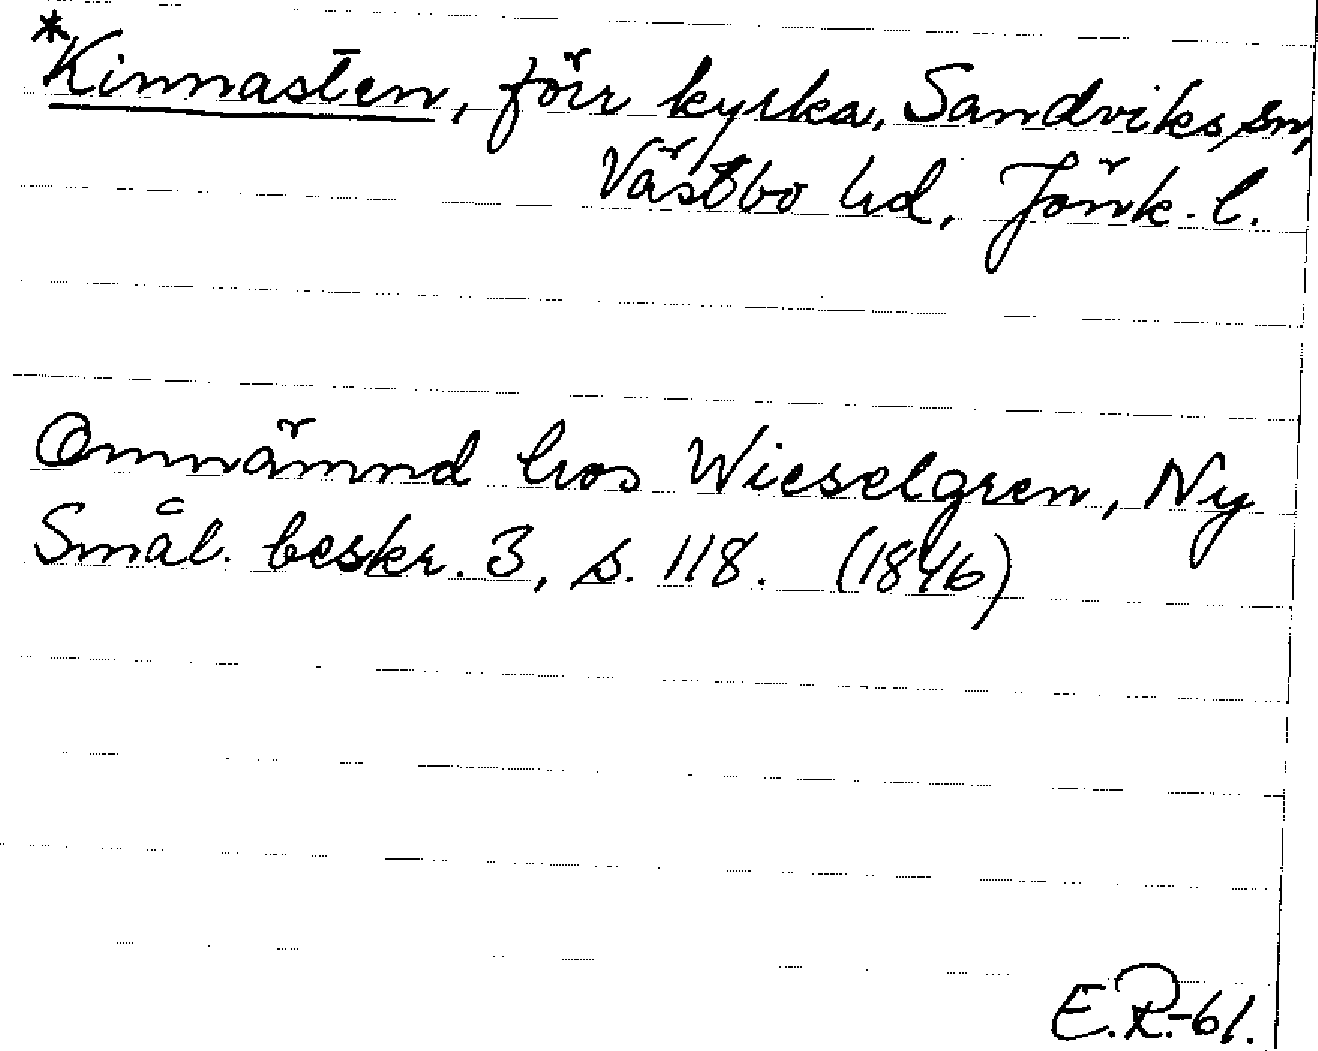 *Kinnasten, förr kyrka, Sandviks sn,
Västbo hd, Jönk. l.
Omnämnd hos Wieselgren, Ny
Smål. beskr. 3, s. 118. (1846)
E.R.-61.